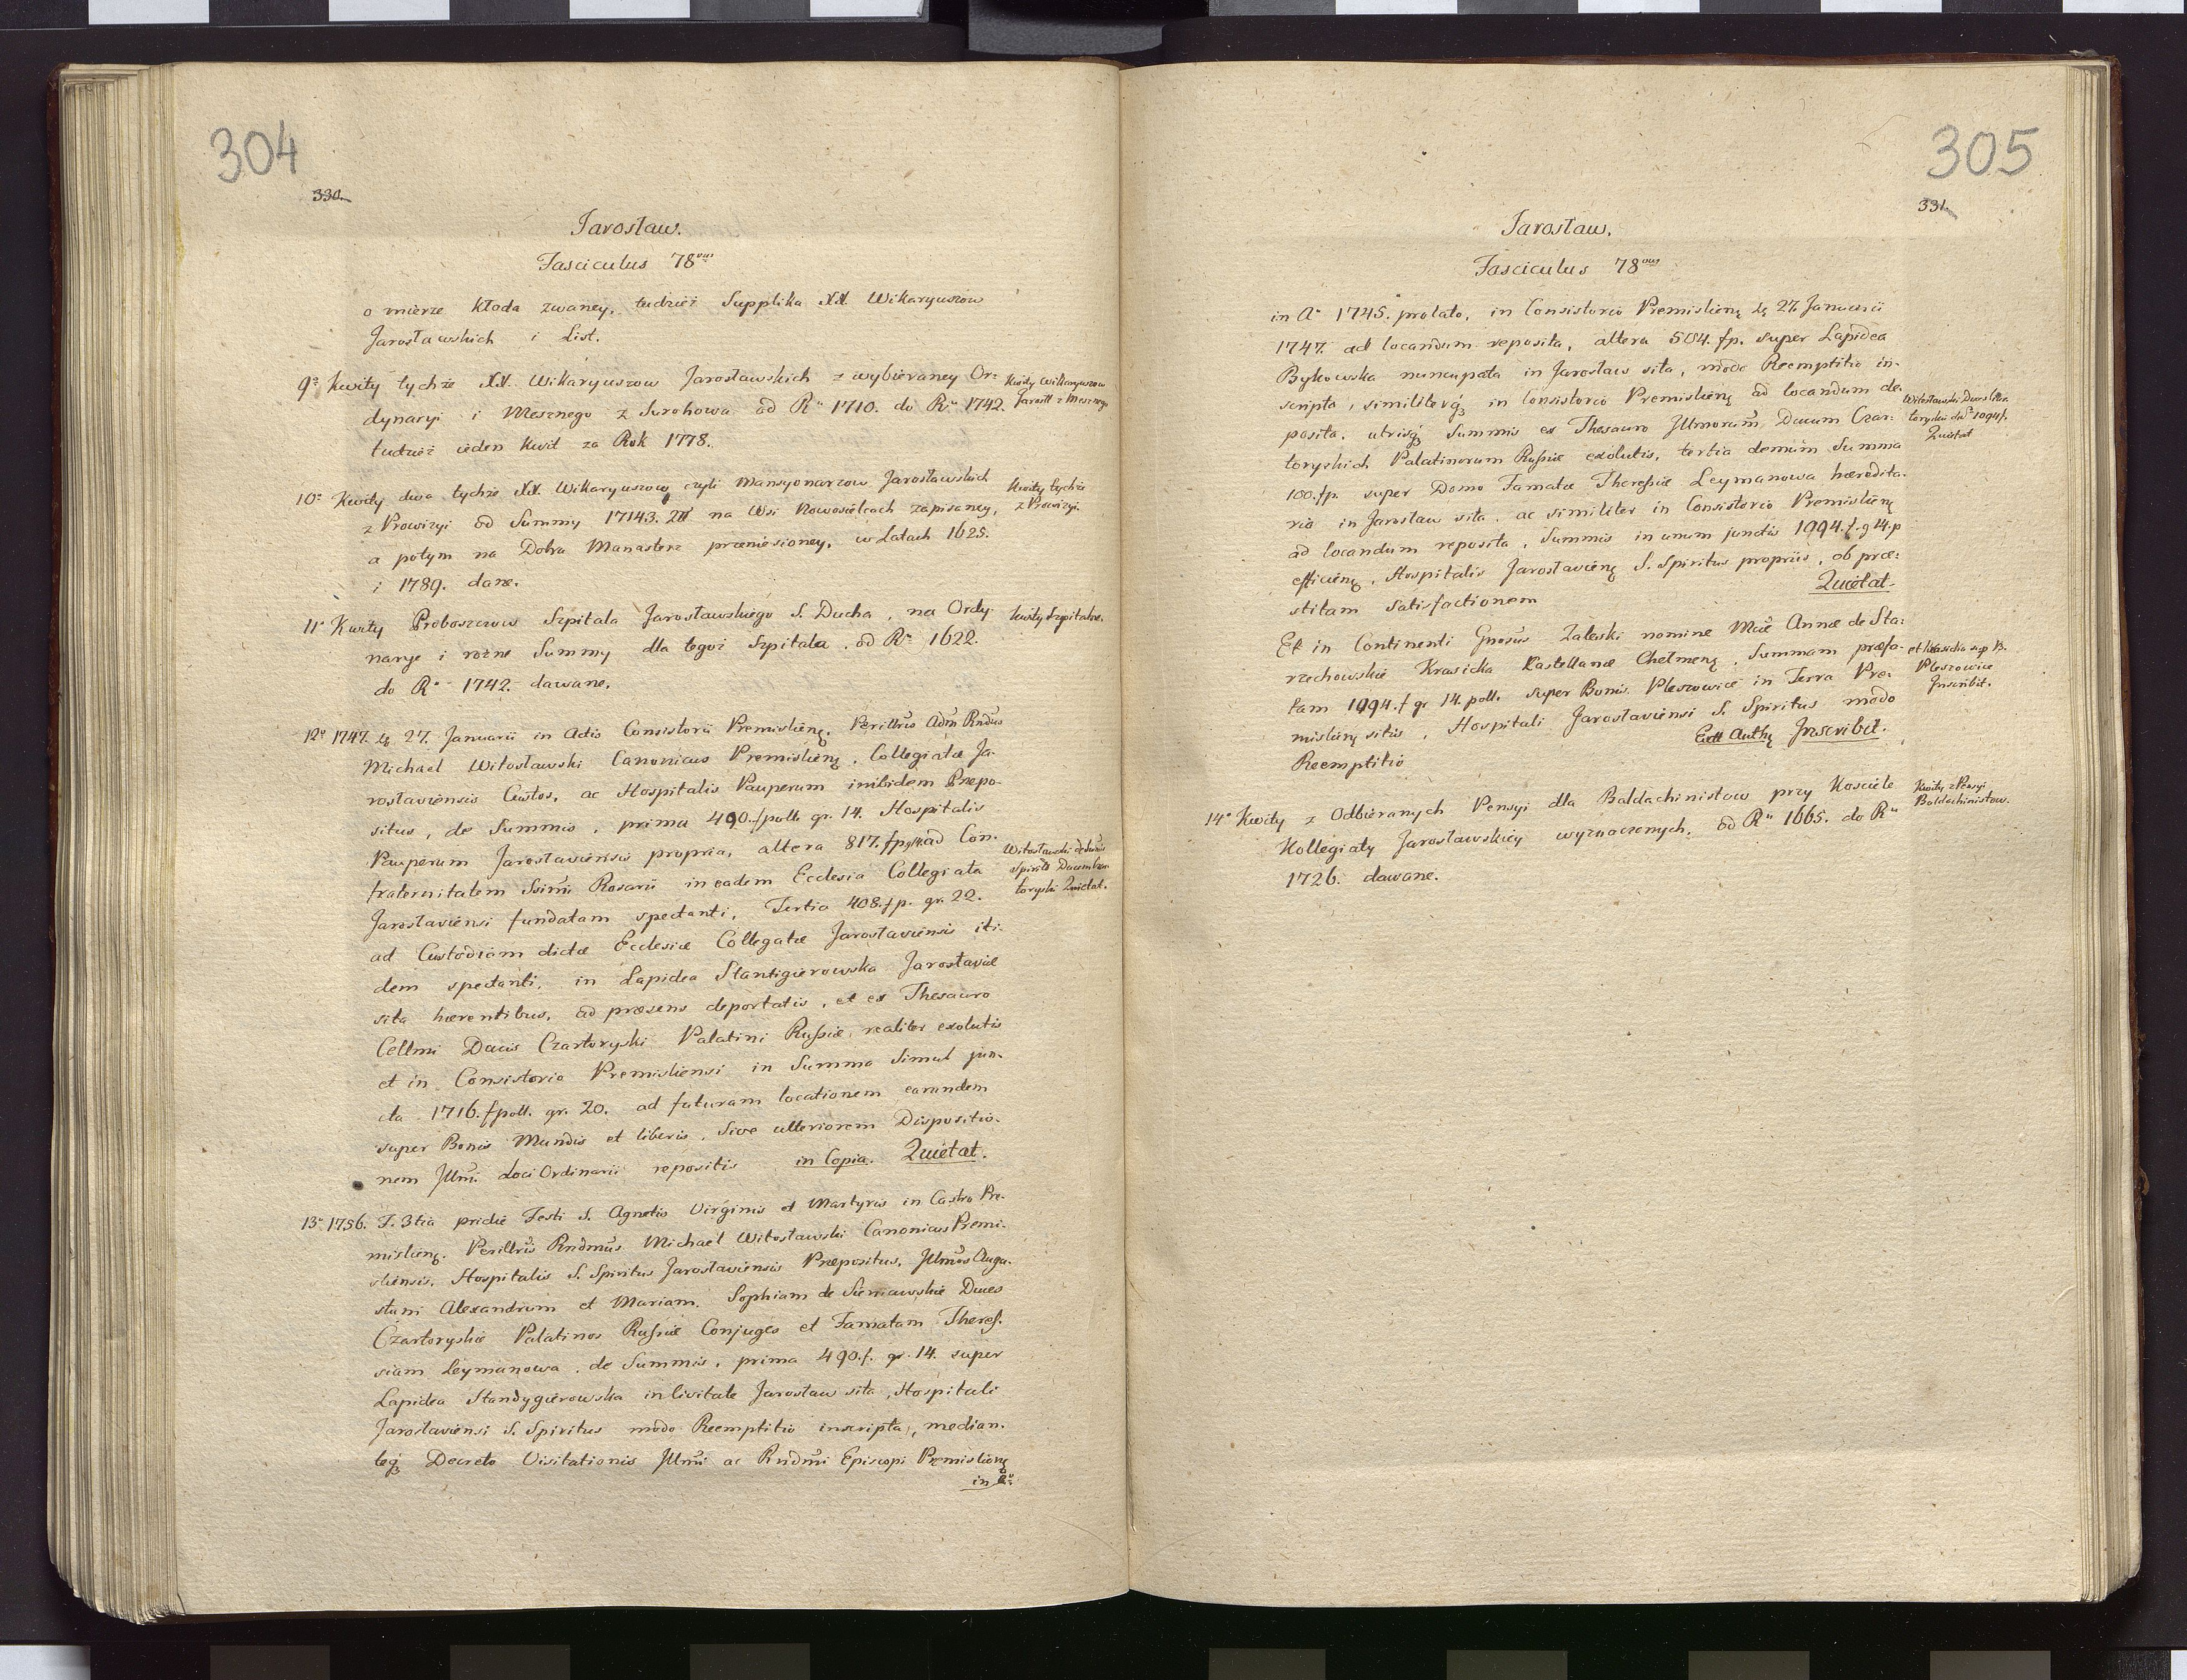 304
330.
Jarosław.
Fasciculus 78vus
o mierze kłoda zwaney, tudzież Supplika XX. Wikaryuszow
Jarosławskich i List.
9o Kwity tychże XX. Wikaryuszow Jarosławskich z wybieraney Or=
dynaryi i Mesznego z Surohowa od Ru 1710. do Ru 1742.
tudzież ieden Kwit za Rok 1778.
Kwity Wikaryuszow
Jarosłł z Mesznego
10o Kwity dwa tychże XX. Wikaryuszow czyli Mansyonarzow Jarosławskich
z Prowizyi od Summy 17143. na Wsi Nowosielcach zapisaney,
a potym na Dobra Manasterz przeniesioney, w Latach 1625.
i 1789. dane.
Kwity tychże
z Prowizyi.
11o Kwity Proboszczow Szpitala Jarosławskiego S. Ducha, na Ordy-
narye i rożne Summy dla tegoż Szpitala. od Ru 1622.
do Ru 1742. dawane.
Kwity Szpitalne.
12o 1747. 27. Januarii in Actis Consistorii Premislieñ. Perillris Adm Rndus
Michael Witosławski Canonicus Premislieñ. Collegiatæ Ja-
rosłaviensis Custos, ac Hospitalis Pauperum inibidem Præpo-
situs, de Summis, prima 490. fpoll. gr. 14. Hospitalis
Pauperum Jarosłaviensis propria, altera 817. fp. ad Con-
fraternitatem Ssimi Rosarii in eadem Ecclesia Collegiata
Jarosłaviensi fundatam spectanti, Tertia 408. fp. gr. 22.
ad Custodiam dictæ Ecclesiæ Collegatæ Jarosłaviensis iti-
dem spectanti, in Lapidea Stantigierowska Jarosłaviæ
sita hærentibus, ad præsens deportatis, et ex Thesauro
Cellmi Ducis Czartoryski Palatini Russiæ, realiter exolutis
et in Consistorio Premisliensi in Summa simul jun-
cta 1716. fpoll. gr. 20. ad futuram locationem earundem
super Bonis Mundis et liberis, sive ulteriorem Dispositio-
nem Jllmi Loci Ordinarii repositis in Copia. Quietat.
Witosławski de Sumis
Spirits Ducem Czar-
toryski Quietat.
13o 1756. F. 3tia pridie Festi S. Agnetis Virginis et Martyris in Castro Pre-
mislieñ. Perillris Rndmus Michael Witosławski Canonicus Premi-
sliensis, Hospitalis S. Spiritus Jarosłaviensis Præpositus, Jllmos Augu-
stum Alexandrum et Mariam Sophiam de Sieniawskie Duces
Czartoryskie Palatinos Russiæ Conjuges et Famatam Theres-
siam Leymanowa, de Summis, prima 490. f. gr. 14. super
Lapidea Standygierowska in Civitate Jarosław sita, Hospitali
Jarosłaviensi S. Spiritus modo Reemptitio inscripta, median-
teq́ Decreto Visitationis Jllmi ac Rndmi Episcopi Premislieñ
in Ao
305
331.
Jarosław.
Fasciculus 78vus
in Ao 1745. prolato, in Consistorio Premislieñ 27. Januarii
1747. ad locandum reposita, altera 504. fp. super Lapidea
Bykowska nuncupata in Jarosław sita, modo Reemptitio in-
scripta, similiterq́ in Consistorio Premislieñ ad locandum de-
posita, utrisq́ Summis ex Thesauro Jllmorum Ducum Czar-
toryskich Palatinorum Russiæ exolutis, tertia demum Summa
100. fp. super Domo Famatæ Theressiæ Leymanowa hæredita-
ria in Jarosław sita, ac similiter in Consistorio Premislieñ
ad locandum reposita, Summis in unum junctis 1094. f. g 14. p
efficieñ, Hospitalis Jarosłavieñ S. Spiritus propriis, ob præ=
stitam satisfactionem Quietat.
Witosławski Duces Cza-
toryskie de Sa 1094 f.
Quietat
Et in Continenti Gnosus Zaleski nomine Mcæ Annæ de Sta-
rzechowskie Krasicka Kastellanæ Chełmeñ, Summam præfa-
tam 1094. f gr 14. poll. super Bonis Pleszowice in Terra Pre-
mislieñ sitis, Hospitali Jarosłaviensi S. Spiritus modo
Reemptitio Extt Auth Jnscribit.
et Krasicka sup B.
Pleszowice
Jnscribit.
14o Kwity z Odbieranych Pensyi dla Baldachinistow przy Kosciele
Kollegiaty Jarosławskiey wyznaczonych, od Ru 1665. do Ru
1726. dawane.
Kwity z Pensyi
Baldachinistow.